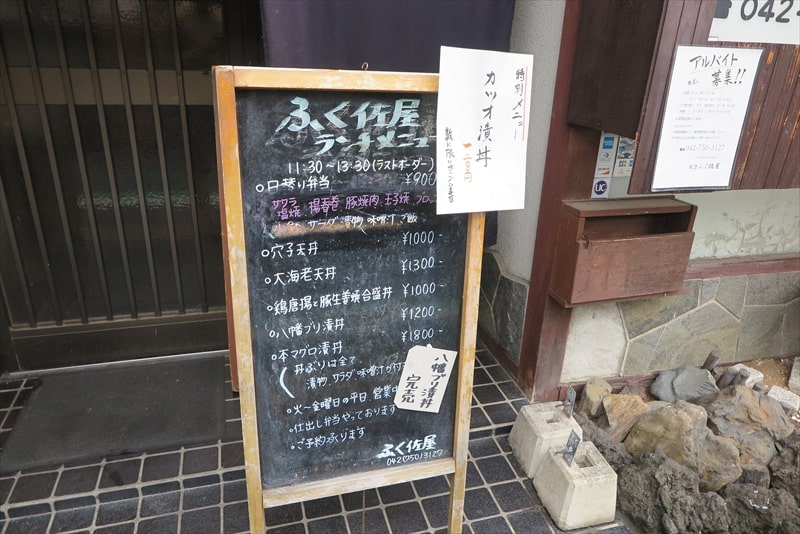 ふく佐屋
ランチメニュー
11:30〜13:30(ラストオーダー)
○日替り弁当 ¥900
サワラ
塩焼、揚春巻、豚焼肉、玉子焼、フロ
サラダ、漬物、味噌汁、ご飯
○穴子天丼 ¥1000-
○大海老天丼 ¥1300-
○鶏唐揚と豚生姜焼合盛丼 ¥1000-
○八幡ブリ漬丼 ¥1200-
○本マグロ漬丼 ¥1800-
丼ぶりは全て
漬物、サラダ、味噌汁が付
○火〜金曜日の平日、営業中
○仕出し弁当やっております
○ご予約承ります
ふく佐屋
042(750)3127
特別メニュー
カツオ漬丼
一二〇〇円
八幡ブリ漬丼
完売
042-
アルバイト
募集!!
042-750-3127
ふく佐屋
UC